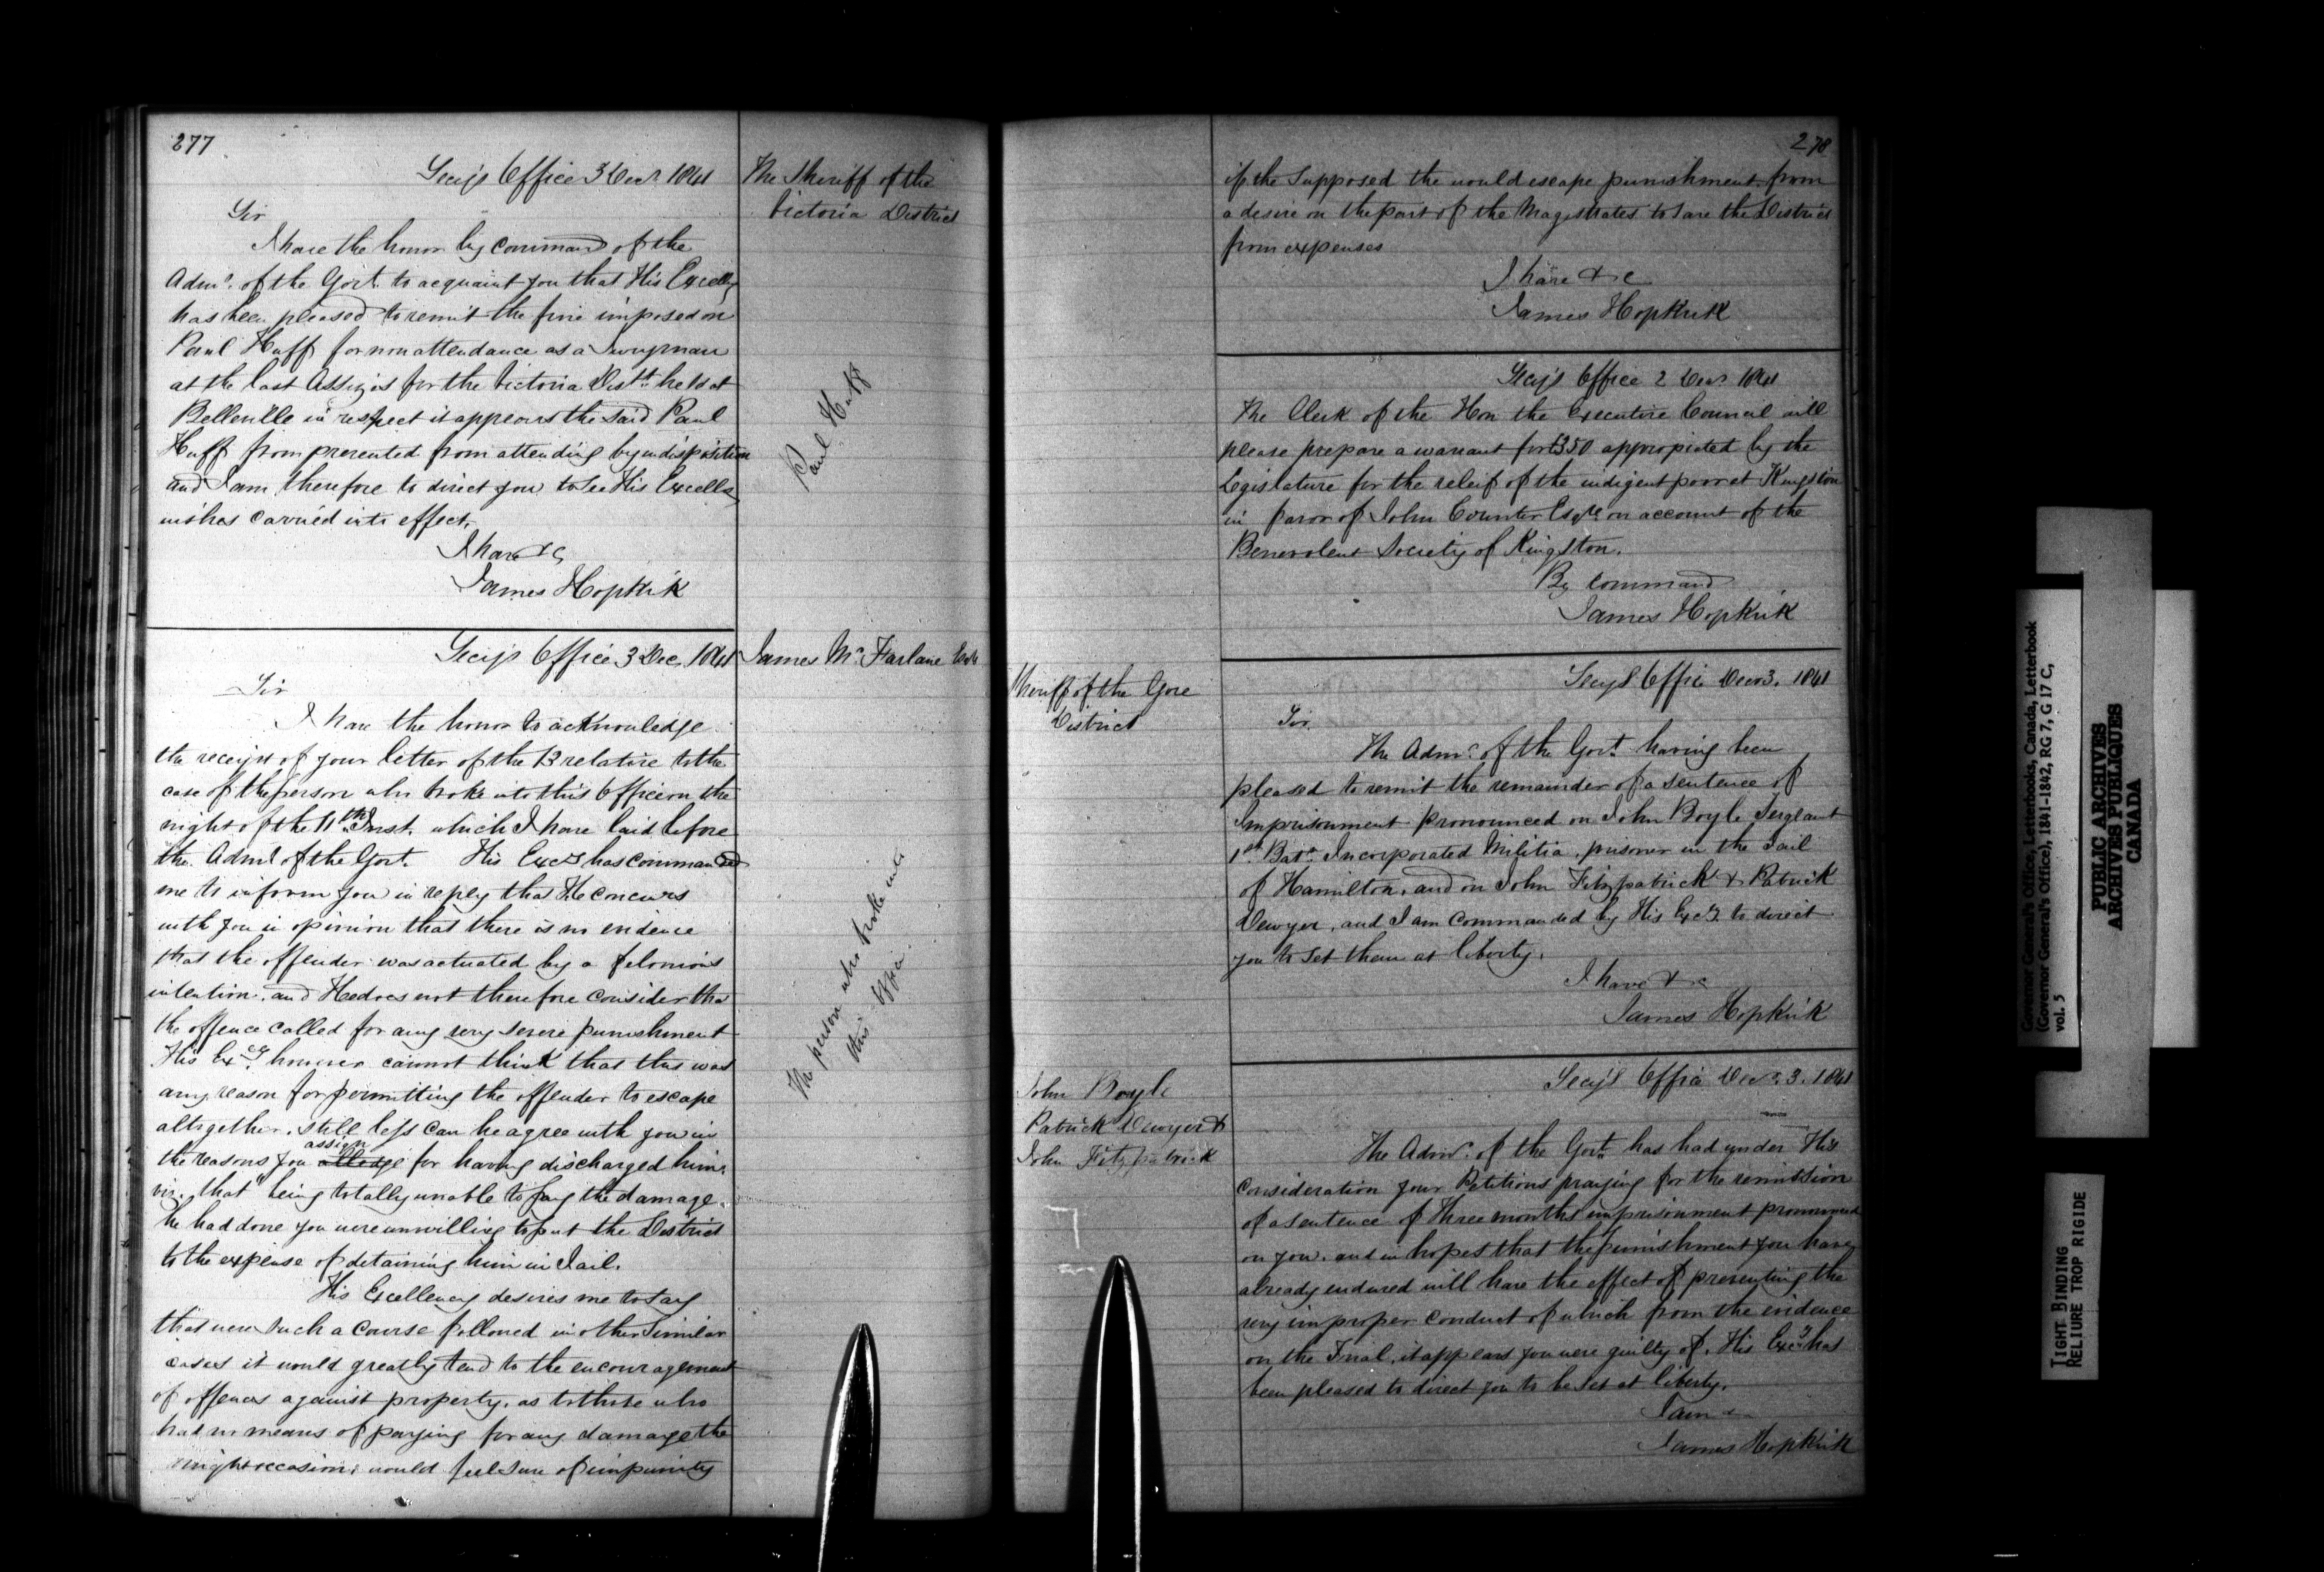 277
Secy's Office 3 Decr 1841
The Sheriff of the
Victoria District
Sir
I have the honor by command of the
Admr. of the Govt. to acquaint you that His Excelly
has been pleased to remit the fine imposed on
Paul Huff for non attendance as a Juryman
at the last Assizes for the Victoria Distt. held at
Belleville in respect it appears the said Paul
Huff from prevented from attending by indisposition
and I am therefore to direct you to see His Excells
wishes carried into effect.
I have &c
James Hopkirk
Paul Huff
Secy's Office 3 Dec. 1841
James McFarlane Esqr
Sir
I have the honor to acknowledge
the receipt of your letter of the 13 relative to the
case of the person who broke into this Office on the
night of the 11th Inst. which I have laid before
the Admr of the Govt. His Excy has commanded
me to inform you in reply that He concurs
with you in opinion that there is no evidence
that the offender was actuated by a felonious
intention, and He does not therefore consider tha
the offence called for any very severe punishment
His Excy however cannot think that this was
any reason for permitting the offender to escape
altogether, still less can he agree with you in
the reasons you assign alledge for having discharged him,
viz. that "being totally unable to pay the damage
he had done you were unwilling to put the District
to the expense of detaining him in Jail.
His Excellency desires me to say
that were such a course followed in other similar
cases it would greatly tend to the encouragement
of offences against property, as to those who
had no means of paying for any damage the
might occasion, would feel sure of impunity
The person who broke into
this Office
278
if the supposed the would escape punishment from
a desire on the part of the Magistrates to save the District
from expenses
I have &c
James Hopkirk
Secy's Office 2 Decr 1841
The Clerk of the Hon the Executive Council will
please prepare a warrant for £350 appropiated by the
Legislature for the releif of the indigent poor at Kingston
in favor of John Counter Esqre on account of the
Benevolent Society of Kingston.
By command
James Hopkirk
Secys Office Decr 3. 1841
Sheriff of the Gore
District
Sir
The Admr. of the Govt. having been
pleased to remit the remainder of a sentence of
Imprisonment pronounced on John Boyle Sergeant
1st. Batn. Incorporated Militia, prisoner in the Jail
of Hamilton, and on John Fitzpatrick & Patrick
Dewyer, and I am commanded by His Excy to direct
you to set them at liberty.
I have &c
James Hopkirk
Secy's Office Decr. 3. 1841
John Boyle
Patrick Dewyer &
John Fitzpatrick
The Admr. of the Govt. has had under His
consideration your Petitions praying for the remission
of a sentence of three months imprisonment pronounced
on you, and in hopes that the punishment you have
already endured will have the effect of preventing the
very improper conduct of which from the evidence
on the Trial, it appears you were guilty of, His Excy has
been pleased to direct you to be set at liberty.
I am &
James Hopkirk
Governor General's Office, Letterbooks, Canada, Letterbook
(Governor General's Office), 1841-1842, RG 7, G 17 C,
vol. 5
PUBLIC ARCHIVES
ARCHIVES PUBLIQUES
CANADA
TIGHT BINDING
RELIURE TROP RIGIDE